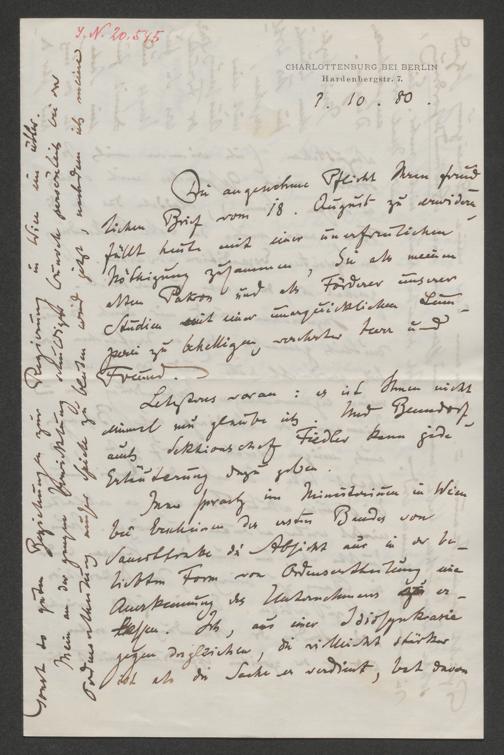 J. N. 20.545
CHARLOTTENBURG BEI BERLIN
Hardenbergstr. 7.
7. 10. 80.
Die angenehme Pflicht Ihren freund-
lichen Brief vom 18. August zu erwidern
fällt heute mit einer unerfreulichen
Nöthigung zusammen, Sie als meinen
alten Patron und als Förderer unserer
Studien mit einer unerquicklichen Lum-
perei zu behelligen, verehrter Herr und
Freund.
Letzteres voran: es ist Ihnen nicht
einmal neu glaube ich. Und Benndorf
auch Sektionschef Fiedler kann jede
Erläuterung dazu geben.
Man sprach im Ministerium in Wien
bei Erscheinen des ersten Bandes von
Samothrake die Absicht aus in der be-
liebten Form von Ordensertheilung eine
Anerkennung des Unternehmens
Ich, aus einer Idiosynkrasie
gegen dergleichen, die vielleicht stärker
ist als die Sache es verdient, bat davon
Ordensertheilung außer Spiele zu bleiben und jetzt, nachdem ich meine
Mein an der ganzen schuldiger Bursch persönlich bei der
sonst so guten Beziehungen zur Regierung in Wien nur übler.